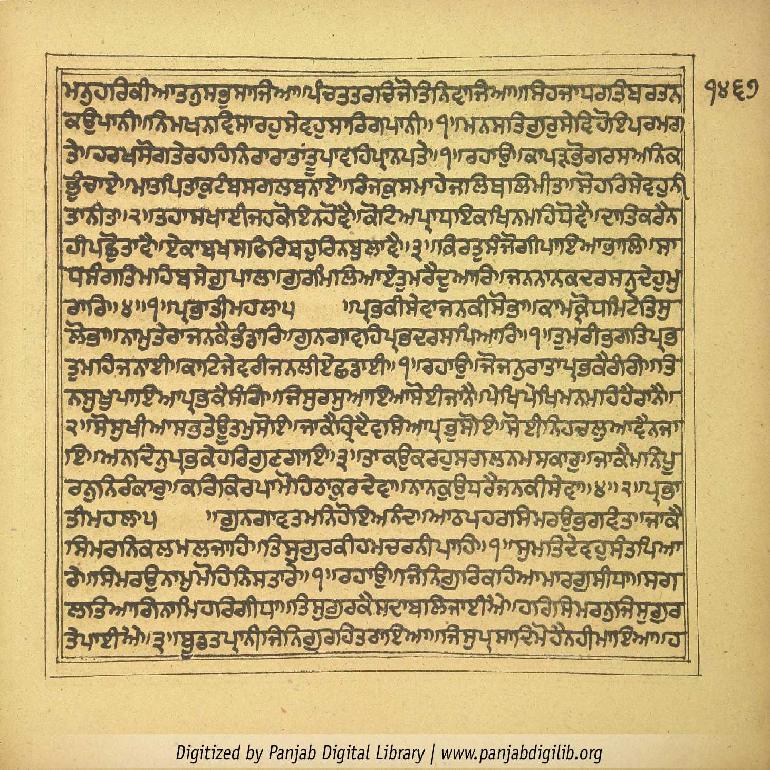 ਮਨੁਹਰਿਕੀਆਤਨੁਸਭੁਸਾਜਿਆ॥ਪੰਚਤਤਰਚਿਜੋਤਿਨਿਵਾਜਿਆ॥ਸਿਹਜਾਧਰਤਿਬਰਤਨ
੧੪੬੭
ਕਉਪਾਨੀ॥ਨਿਮਖਨਵਿਸਾਰਹੁਸੇਵਹੁਸਾਰਿਗਪਾਨੀ॥੧॥ਮਨਸਤਿਗੁਰੁਸੇਵਿਹੋਇਪਰਮਗ
ਤੇ॥ਹਰਖਸੋਗਤੇਰਹਹਿਨਿਰਾਰਾਤਾਂਤੂਪਾਵਹਿਪ੍ਰਾਨਪਤੇ॥੧॥ਰਹਾਉ॥ਕਾਪੜਭੋਗਰਸਅਨਿਕ
ਭੁੰਚਾਏ॥ਮਾਤਪਿਤਾਕੁਟੰਬਸਗਲਬਨਾਏ॥ਰਿਜਕੁਸਮਾਹੇਜਲਿਥਲਿਮੀਤ॥ਸੋਹਰਿਸੇਵਹੁਨੀ
ਤਾਨੀਤ॥੨॥ਤਹਾਸਖਾਈਜਹਕੋਇਨਹੋਵੈ॥ਕੋਟਿਅਪ੍ਰਾਧਇਕਖਿਨਮਹਿਧੋਵੈ॥ਦਾਤਿਕਰੈਨ
ਹੀਪਛੁੋਤਾਵੈ॥ਏਕਾਬਖਸਫਿਰਿਬਹੁਰਿਨਬੁਲਾਵੈ॥੩॥ਕਿਰਤੁਸੰਜੋਗੀਪਾਇਆਭਾਲਿ॥ਸਾ
ਧਸੰਗਤਿਮਹਿਬਸੇਗੁਪਾਲ॥ਗੁਰਮਿਲਿਆਏਤੁਮਰੈਦੁਆਰ॥ਜਨਨਾਨਕਦਰਸਨੁਦੇਹੁਮੁ
ਰਾਰਿ॥੪॥੧॥ਪ੍ਰਭਾਤੀਮਹਲਾ੫ ॥ਪ੍ਰਭਕੀਸੇਵਾਜਨਕੀਸੋਭਾ॥ਕਾਮਕ੍ਰੋਧਮਿਟੇਤਿਸੁ
ਲੋਭਾ॥ਨਾਮੁਤੇਰਾਜਨਕੈਭੰਡਾਰਿ॥ਗੁਨਗਾਵਹਿਪ੍ਰਭਦਰਸਪਿਆਰਿ॥੧॥ਤੁਮਰੀਭਗਤਿਪ੍ਰਭ
ਤੁਮਹਿਜਨਾਈ॥ਕਾਟਿਜੇਵਰੀਜਨਲੀਏਛਡਾਈ॥੧॥ਰਹਾਉ॥ਜੋਜਨੁਰਾਤਾਪ੍ਰਭਕੈਰੰਗਿ॥ਤਿ
ਨਸੁਖੁਪਾਇਆਪ੍ਰਭਕੈਸੰਗਿ॥ਜਿਸੁਰਸੁਆਇਆਸੋਈਜਾਨੈ॥ਪੇਖਿਪੇਖਿਮਨਮਹਿਹੈਰਾਨੈ॥
੨॥ਸੋਸੁਖੀਆਸਭਤੇਊਤਮੁਸੋਇ॥ਜਾਕੈਹ੍ਰਿਦੈਵਸਿਆਪ੍ਰਭੁਸੋਇ॥ਸੋਈਨਿਹਚਲੁਆਵੈਨਜਾ
ਇ॥ਅਨਦਿਨੁਪ੍ਰਭਕੇਹਰਿਗੁਣਗਾਇ॥੩॥ਤਾਕਉਕਰਹੁਸਗਲਨਮਸਕਾਰੁ॥ਜਾਕੈਮਨਿਪੂ
ਰਨੁਨਿਰੰਕਾਰੁ॥ਕਰਿਕਿਰਪਾਮੋਹਿਠਾਕੁਰਦੇਵਾ॥ਨਾਨਕੁਉਧਰੈਜਨਕੀਸੇਵਾ॥੪॥੨॥ਪ੍ਰਭਾ
ਤੀਮਹਲਾ੫ ॥ਗੁਨਗਾਵਤਮਨਿਹੋਇਅਨੰਦ॥ਆਠਪਹਰਸਿਮਰਉਭਗਵੰਤ॥ਜਾਕੈ
ਸਿਮਰਨਿਕਲਮਲਜਾਹਿ॥ਤਿਸੁਗੁਰਕੀਹਮਚਰਨੀਪਾਹਿ॥੧॥ਸੁਮਤਿਦੇਵਹੁਸੰਤਪਿਆ
ਰੇ॥ਸਿਮਰਉਨਾਮੁਮੋਹਿਨਿਸਤਾਰੇ॥੧॥ਰਹਾਉ॥ਜਿਨਿਗੁਰਿਕਹਿਆਮਾਰਗੁਸੀਧਾ॥ਸਗ
ਲਤਿਆਗਿਨਾਮਿਹਰਿਗੀਧਾ॥ਤਿਸੁਗੁਰਕੈਸਦਾਬਲਿਜਾਈਐ॥ਹਰਿਸਿਮਰਨੁਜਿਸੁਗੁਰ
ਤੇਪਾਈਐ॥੨॥ਬੂਡਤਪ੍ਰਾਨੀਜਿਨਿਗੁਰਹਿਤਰਾਇਆ॥ਜਿਸੁਪ੍ਰਸਾਦਿਮੋਹੈਨਹੀਮਾਇਆ॥ਹ
Digitized by Panjab Digital Library | www.panjabdigilib.org